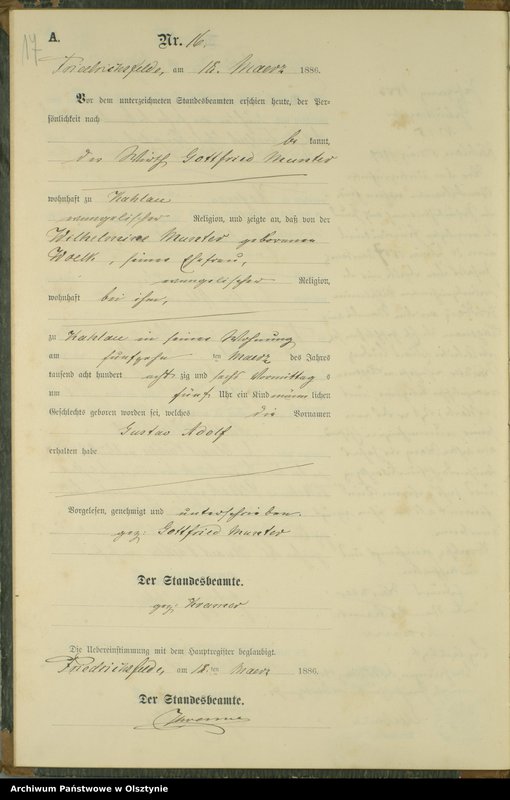 17
A.
Nr. 16.
Friedrichsfelde, am 18. Maerz 1886.
Vor dem unterzeichneten Standesbeamten erschien heute, der Per-
sönlichkeit nach
be kannt,
der Wirth Gottfried Munter
wohnhaft zu Kahlau
evangelischer Religion, und zeigte an, daß von der
Wilhelmine Munter geborenen
Woelk, seiner Ehefrau,
evangelischer Religion,
wohnhaft bei ihm,
zu Kahlau in seiner Wohnung
am fünfzehn ten Maerz des Jahres
tausend acht hundert acht zig und sechs Vormittag s
um fünf Uhr ein Kind männ lichen
Geschlechts geboren worden sei, welches die Vornamen
Gustav Adolf
erhalten habe
Vorgelesen, genehmigt und unterschrieben.
gez: Gottfried Munter
Der Standesbeamte.
gez: Kramer
Die Uebereinstimmung mit dem Hauptregister beglaubigt.
Friedrichsfelde, am 18. ten Maerz 1886.
Der Standesbeamte.
Archiwum Państwowe w Olsztynie